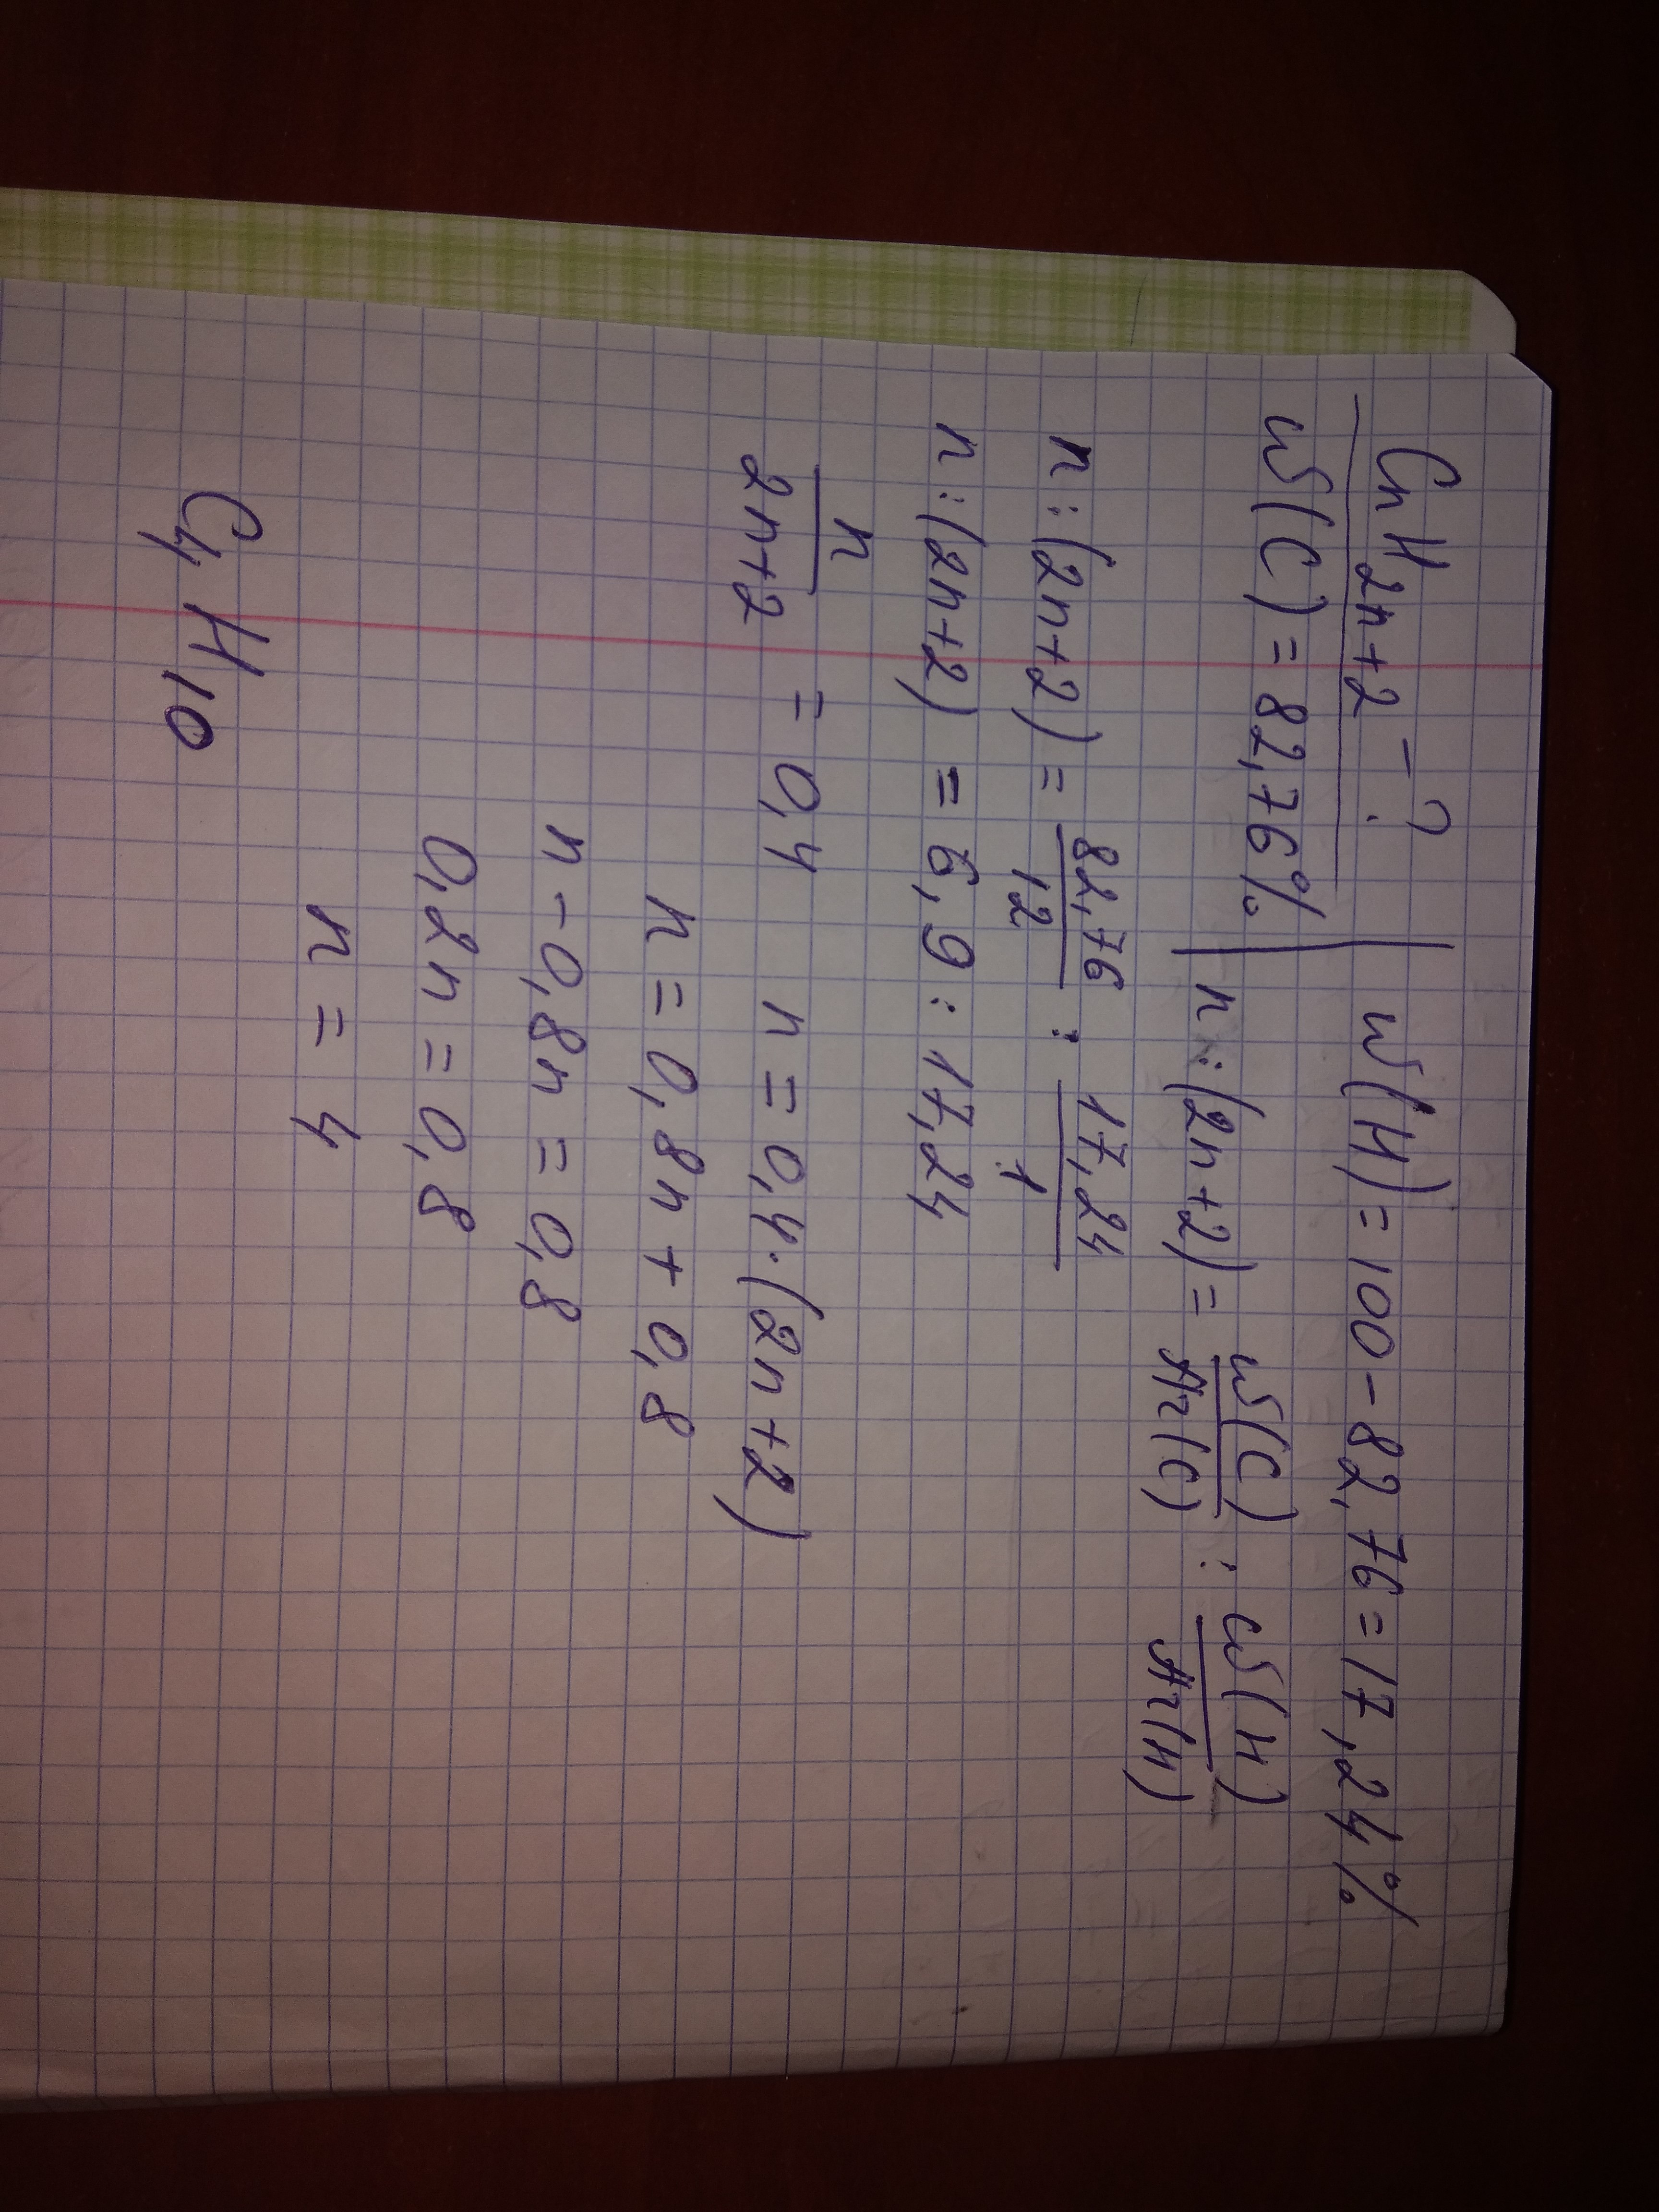 CnH2n+2 - ? | w(H) = 100 - 82,76 = 17,24%
w(C) = 82,76% | n : (2n+2) = w(C)/Ar(C) : w(H)/Ar(H)
n : (2n+2) = 82,76/12 : 17,24/1
n : (2n+2) = 6,9 : 17,24
n/2n+2 = 0,4 n = 0,4·(2n+2)
n = 0,8n + 0,8
n - 0,8n = 0,8
0,2n = 0,8
n = 4
C4H10